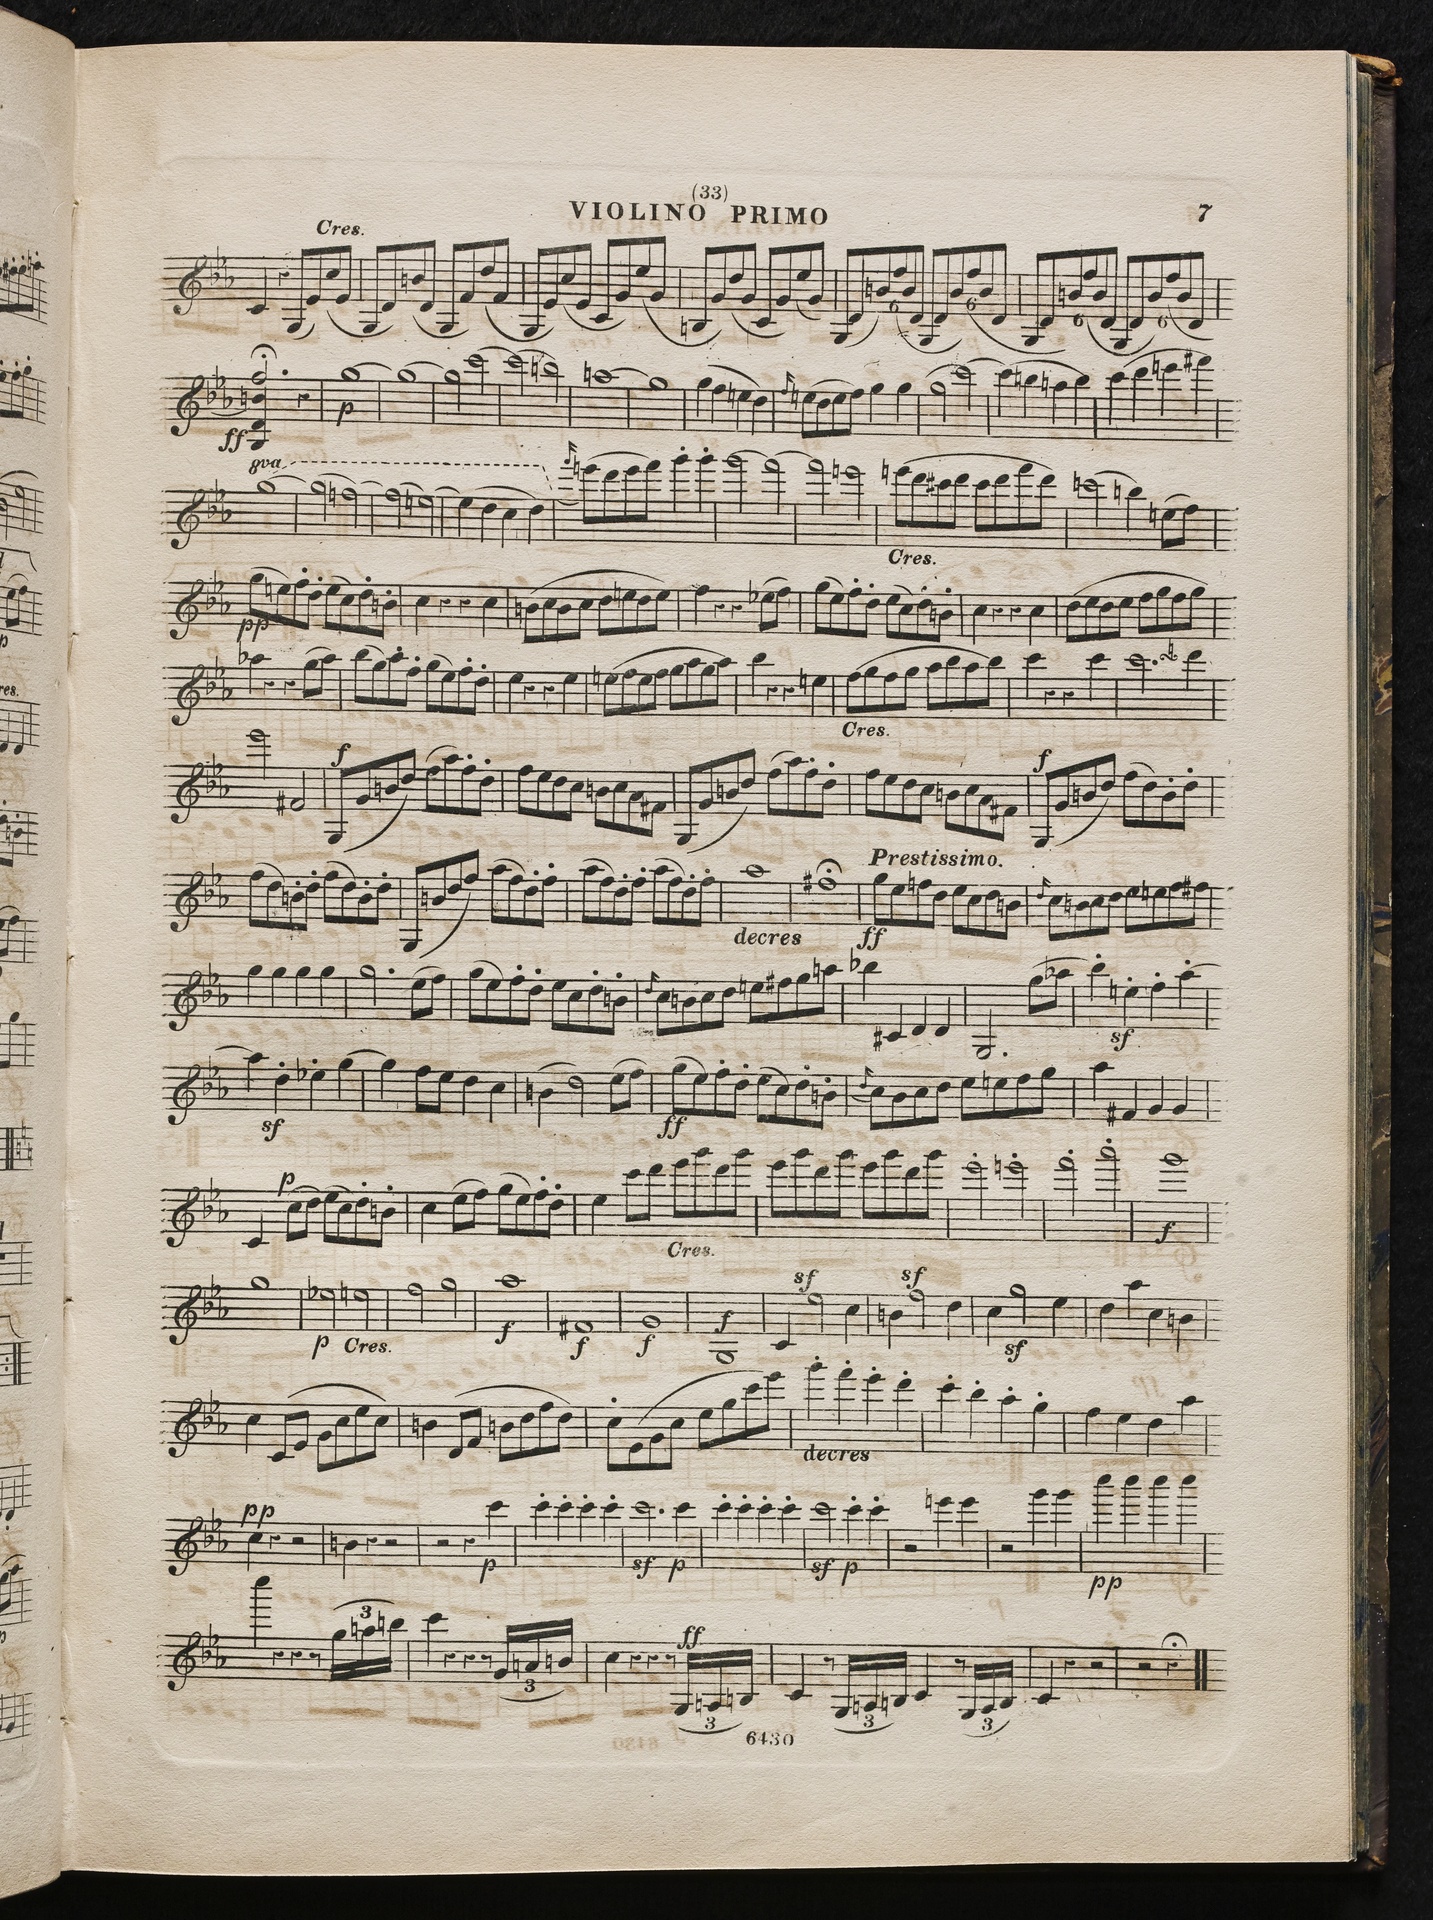 (33)
VIOLINO PRIMO 7
Cres.
6 6 6 6
p
ff
8va
Cres.
pp
Cres.
f f
Prestissimo.
decres ff
sf
sf ff
p
Cres. f
sf sf
p Cres. f f f f sf
decres
pp
p sf p sf p pp
3 ff
3 3 3 3
6430